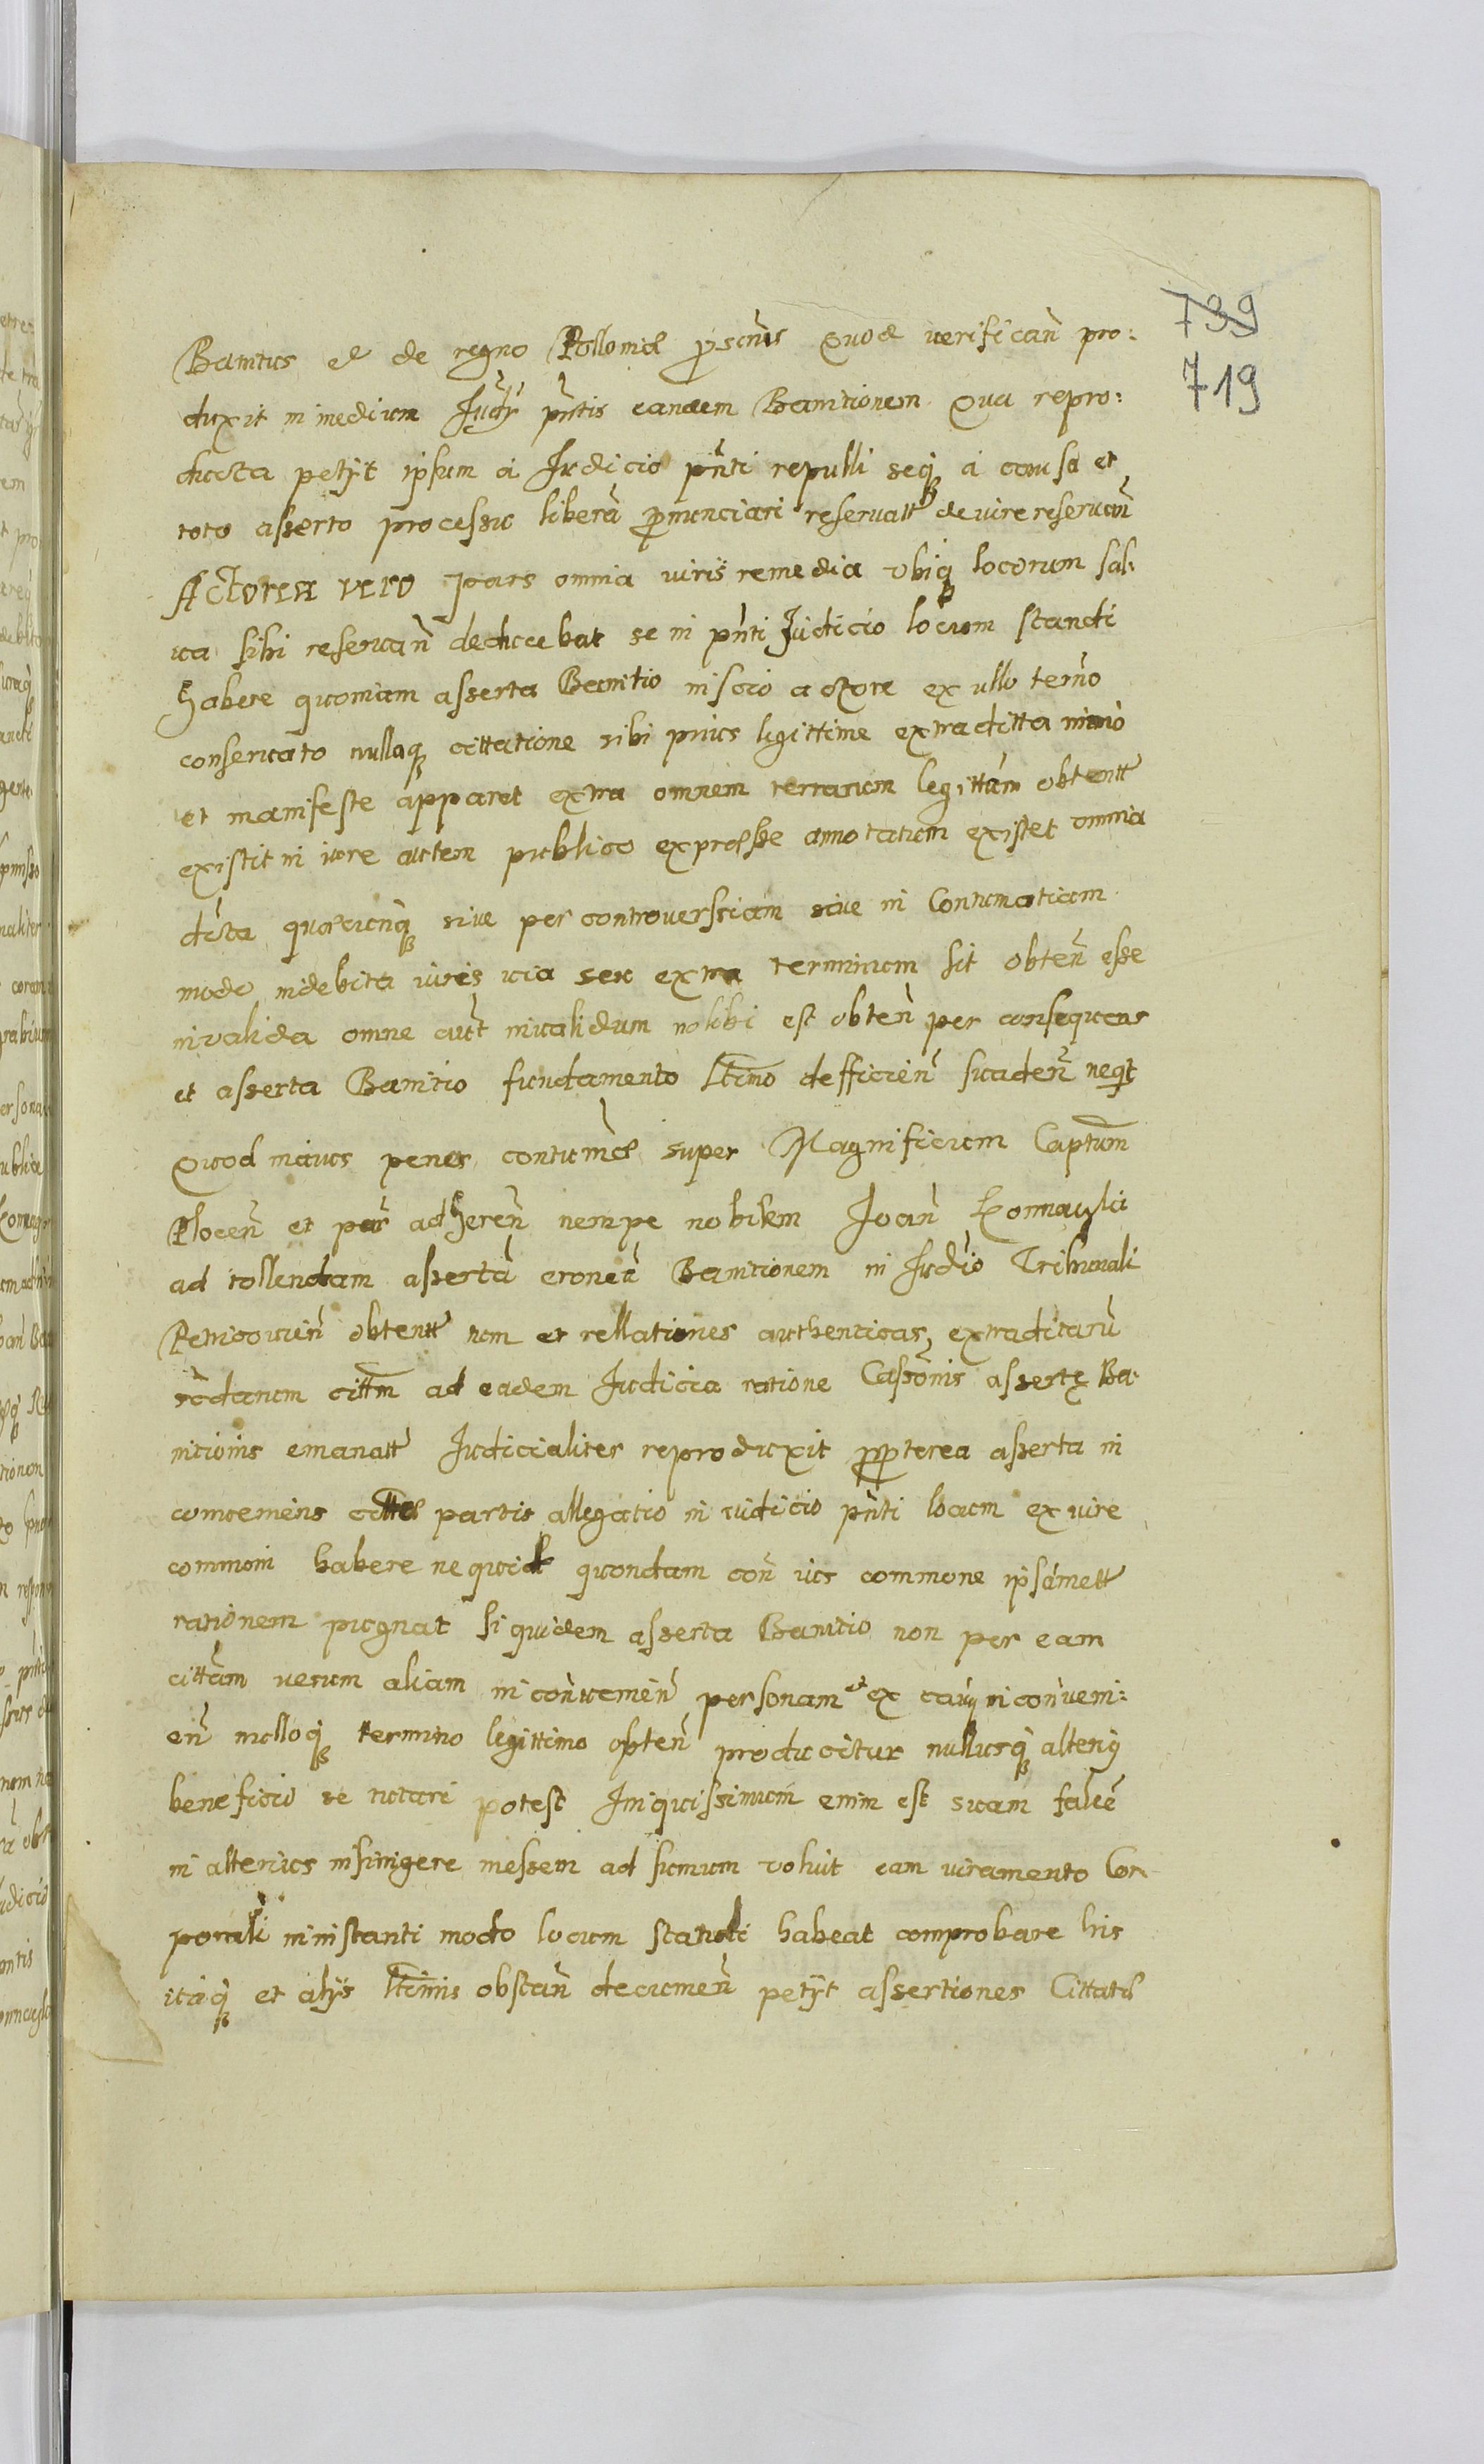 739
719
Banitus et de regno Polloniæ pscñis Quod verificañ pro:
duxit in medium Judÿ pñtis eandem Banitionem Qua repro:
ducta petÿt ipsum a Judicio pñti repulli seqȝ a causa et
toto asserto processu liberã pnunciari reservatt de iure reservañ
Actorea vero pars omnia iuris remedia ubiqȝ locorum sal:
va sibi reservañ deducebat se in pñti Judicio locum standi
habere quoniam asserta Banitio inscio actore ex ullo termo
conservato nullaqȝ cittatione sibi prius legittime extraditta nimo
et manifeste apparet extra omnem terminum legittim obtentt
existit in iure autem publico expresse annotatum existet omnia
dicta quæcunqȝ sive per controverssiam sive in Contumatiam
modo indebita iuris via seu extra terminum sit obteñ esse
invalida omne aut invalidum nolibi est obteñ per consequens
et asserta Banitio fundamento lttimo defficieñ suadeñ neqt
Quod maius penes contumæ super Magnificum Captum
Ploceñ et par adhereñ nempe nobilem Joañ
ad tollendam assertã eroneã Banitionem in Judio Tribunali
Petricovieñ obtentt num et rellationes authenticas extraditarũ
cittm ad eadem Judicia ratione Cassonis assertę Ba:
nitionis emanatt Judicialiter reproduxit ppterea asserta in
convemens cittæ partis allegatio in iudicio pñti locum ex iure
commoni habere nequid quondam coñ ius commone ipsãmett
rationem pugnat si quidem asserta Banitio non per eam
cittãm verum aliam inconvemieñ personam et ex inconveni:
eñ nulloqȝ termino legittimo opteñ producitur nullusqȝ alterig
beneficio se iutari potest Iniquissimum enim est suam falcẽ
in alterius insiingere messem ad sumum voluit eam iuramento Cor
porali ininstanti modo locum standi habeat comprobare his
itaqȝ et alÿs lttimis obstañ decumeñ petÿt assertiones Cittatæ